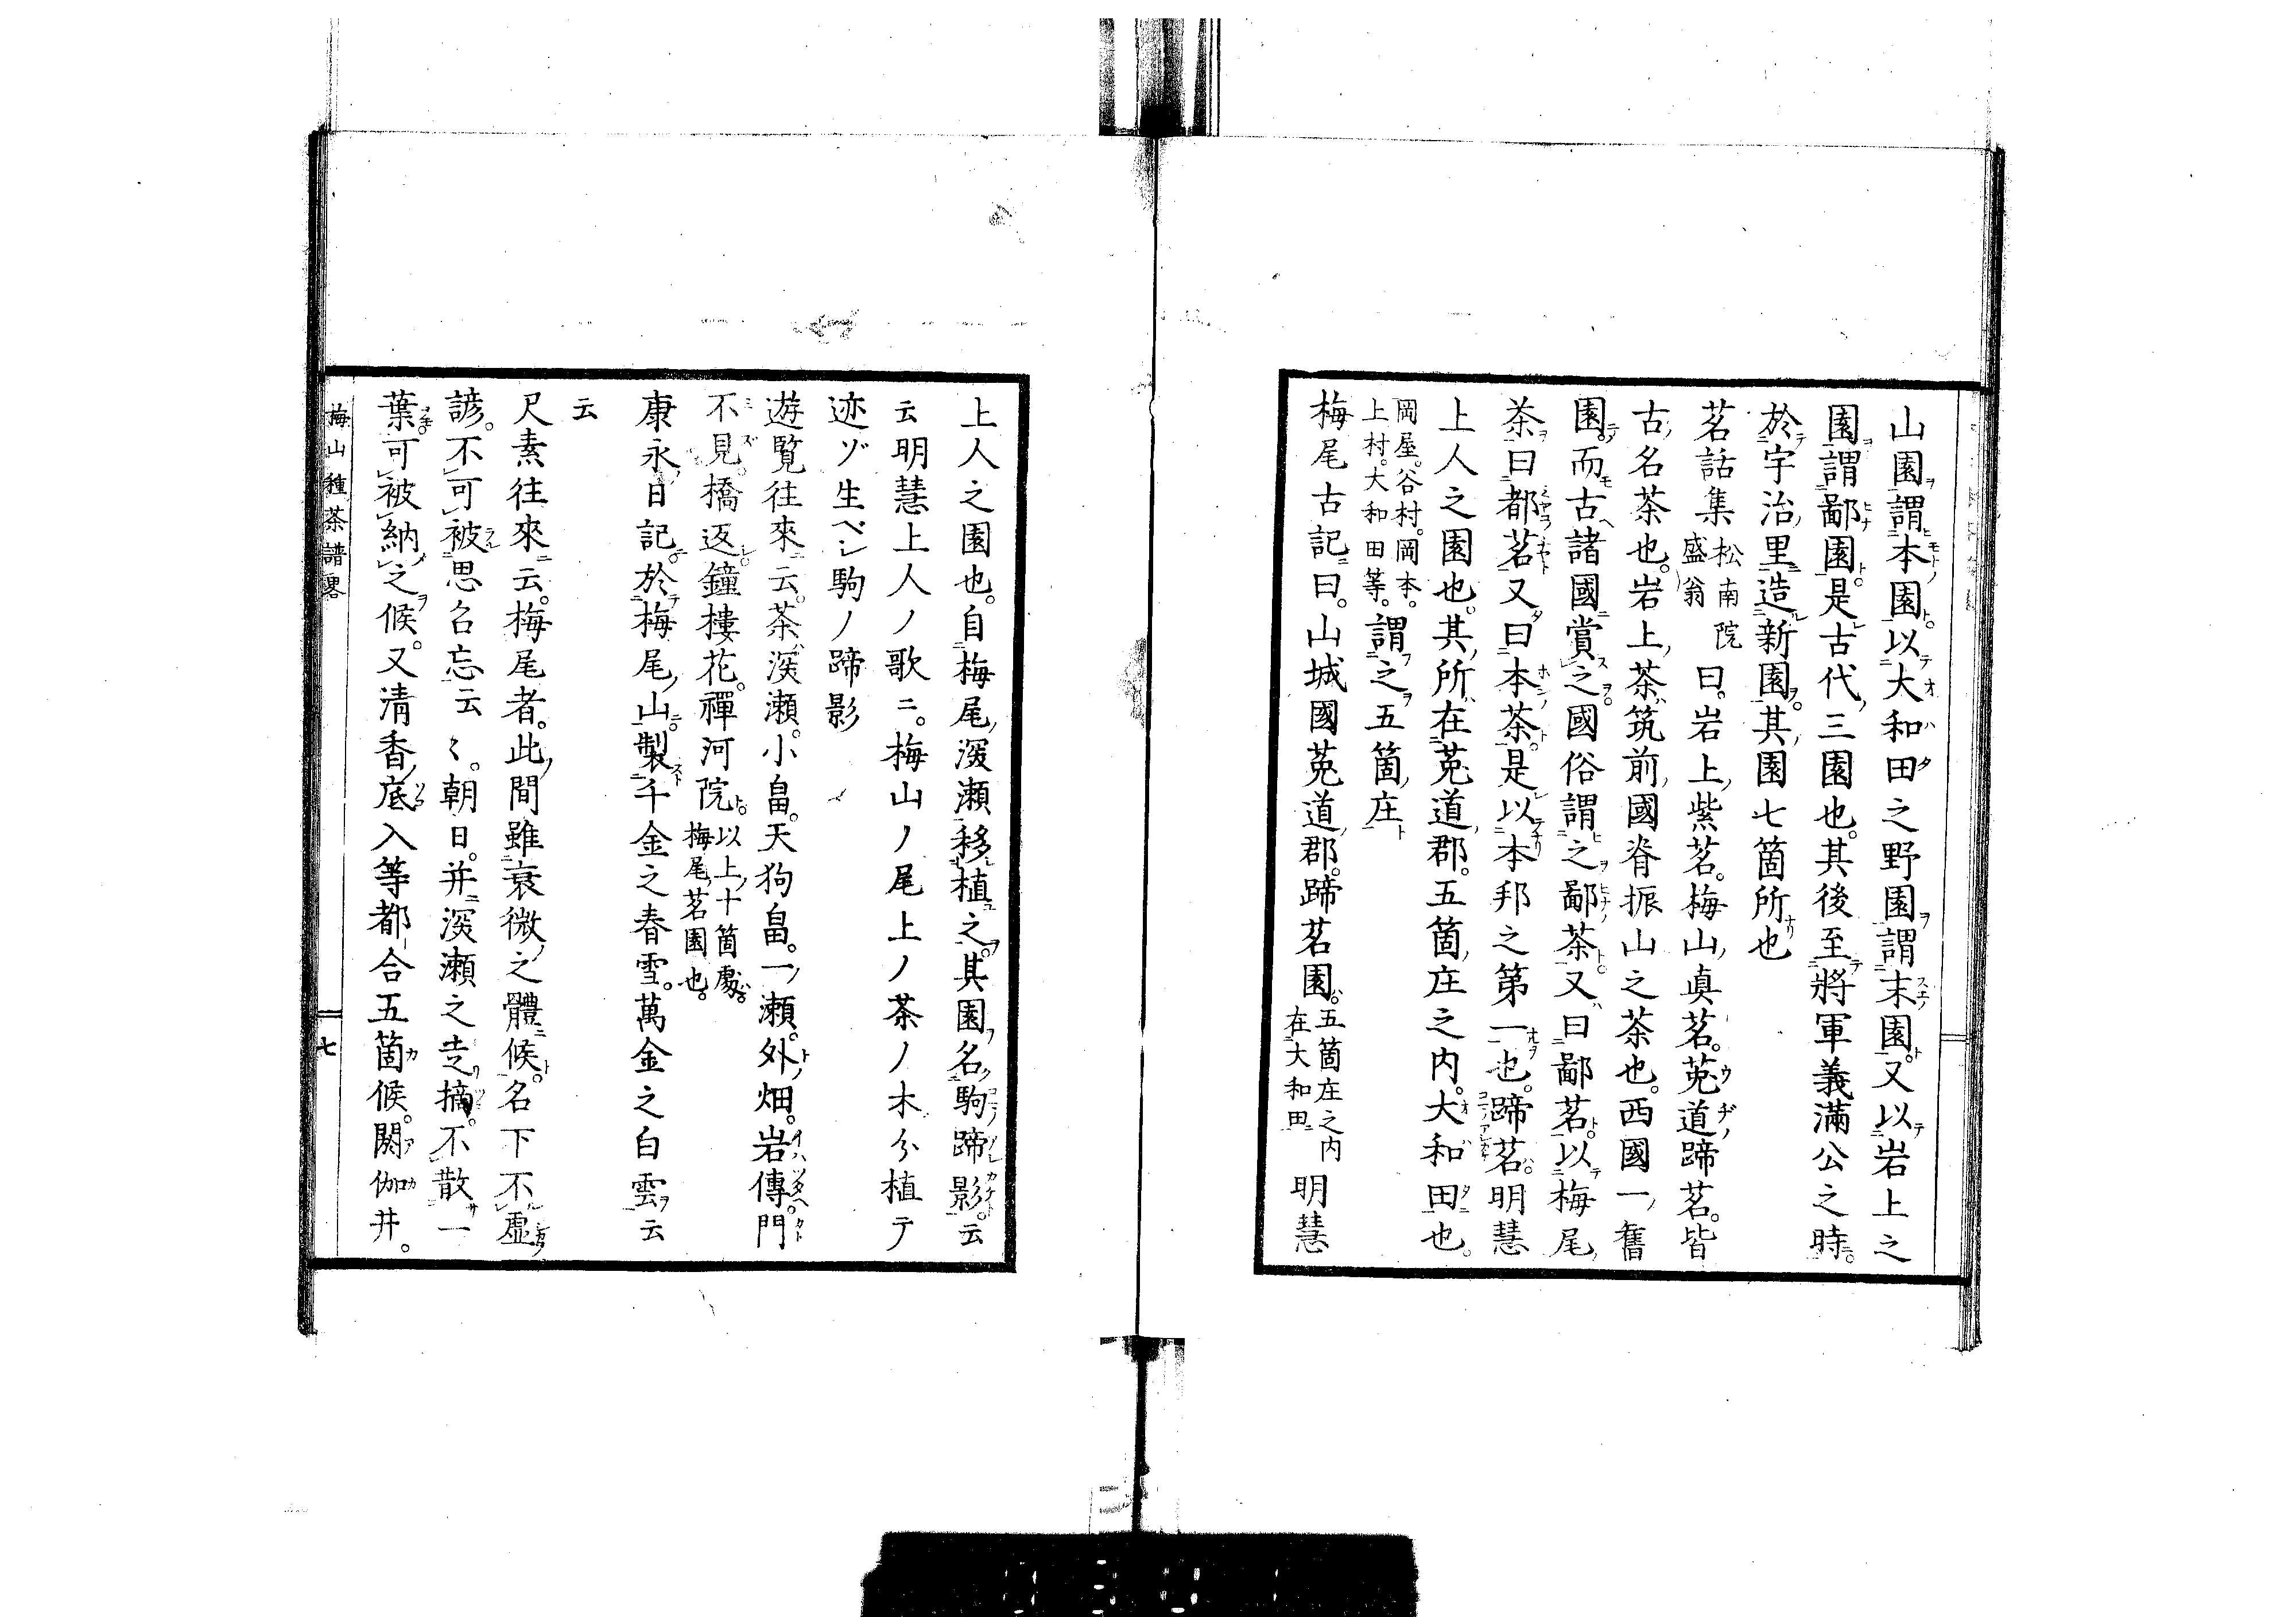 山園謂本園以大和田之野園謂末園又以岩上之
園謂鄙園是古代三園也其後至將軍義滿公之時
於宇治里造新園其園七箇所也
茗話集松南院盛翁曰岩上紫茗梅山眞茗莵道蹄茗皆
古名茶也岩上茶筑前國脊振山之茶也西國一舊
園而古諸國賞之國俗謂之鄙茶又曰鄙茗以梅尾
茶曰都茗又曰本茶是以本邦之第一也蹄茗明慧
上人之園也其所在莵道郡五箇庄之内大和田也
岡屋。谷村。岡本。上村。大和田等。謂之五箇庄
梅尾古記曰。山城國莵道郡。蹄茗園。五箇庄之内在大和田明慧
上人之園也。自梅尾深瀬移植之其園名駒蹄影。云
云明慧上人ノ歌ニ。梅山ノ尾上ノ茶ノ木分植テ
迹ゾ生ベシ駒ノ蹄影
遊覧往來云。茶深瀬。小畠。天狗畠。一瀬。外畑。岩傳。門
不見。橋返。鐘樓花。禪河院。以上十箇處。梅尾茗園也。
康永日記。於梅尾山製千金之春雪。萬金之白雲云
云
尺素往來云。梅尾者。此間雖衰微之體候。名下不虚
諺。不可被思召忘云々。朝日。并深瀬之疌摘。不散一
葉。可被納之候。又清香底入等都合五箇候。閼伽井。
梅山種茶譜畧
七